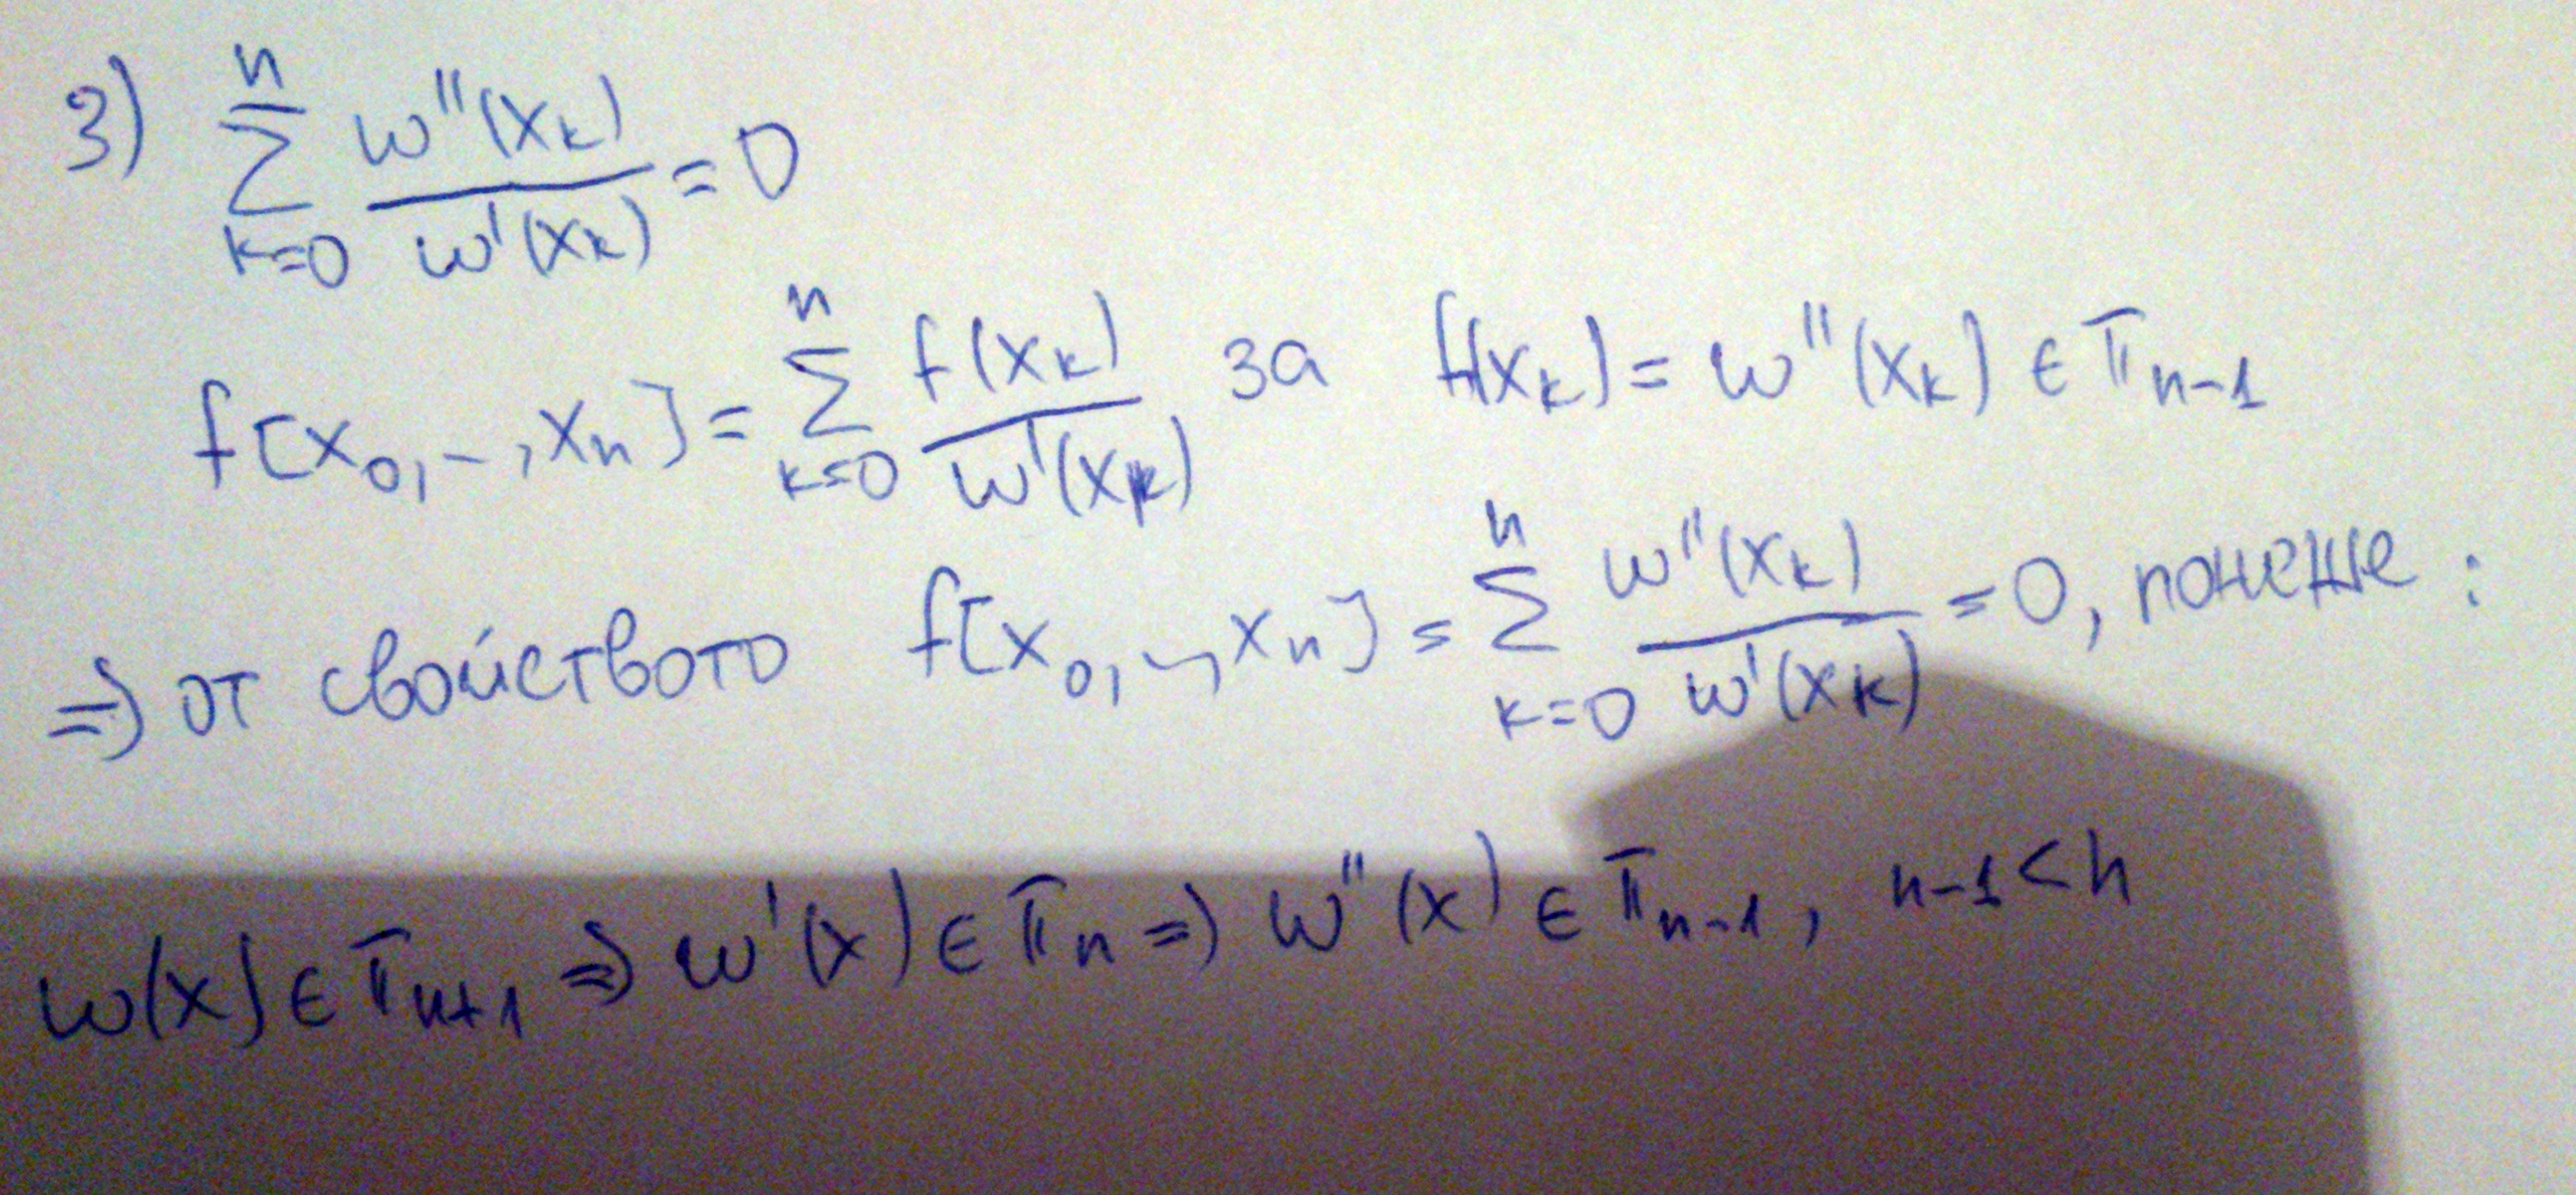 3) \sum_{k=0}^{n} \frac{ω''(x_k)}{ω'(x_k)} = 0
f[x_0,-,x_n] = \sum_{k=0}^{n} \frac{f(x_k)}{ω'(x_k)}, за f(x_k) = ω''(x_k) ∈ π_{n-1}
⇒ от свойството f[x_0,-,x_n] = \sum_{k=0}^{n} \frac{ω''(x_k)}{ω'(x_k)} = 0, понеже :
ω(x) ∈ π_{n+1} ⇒ ω'(x) ∈ π_n ⇒ ω''(x) ∈ π_{n-1}, n-1<n